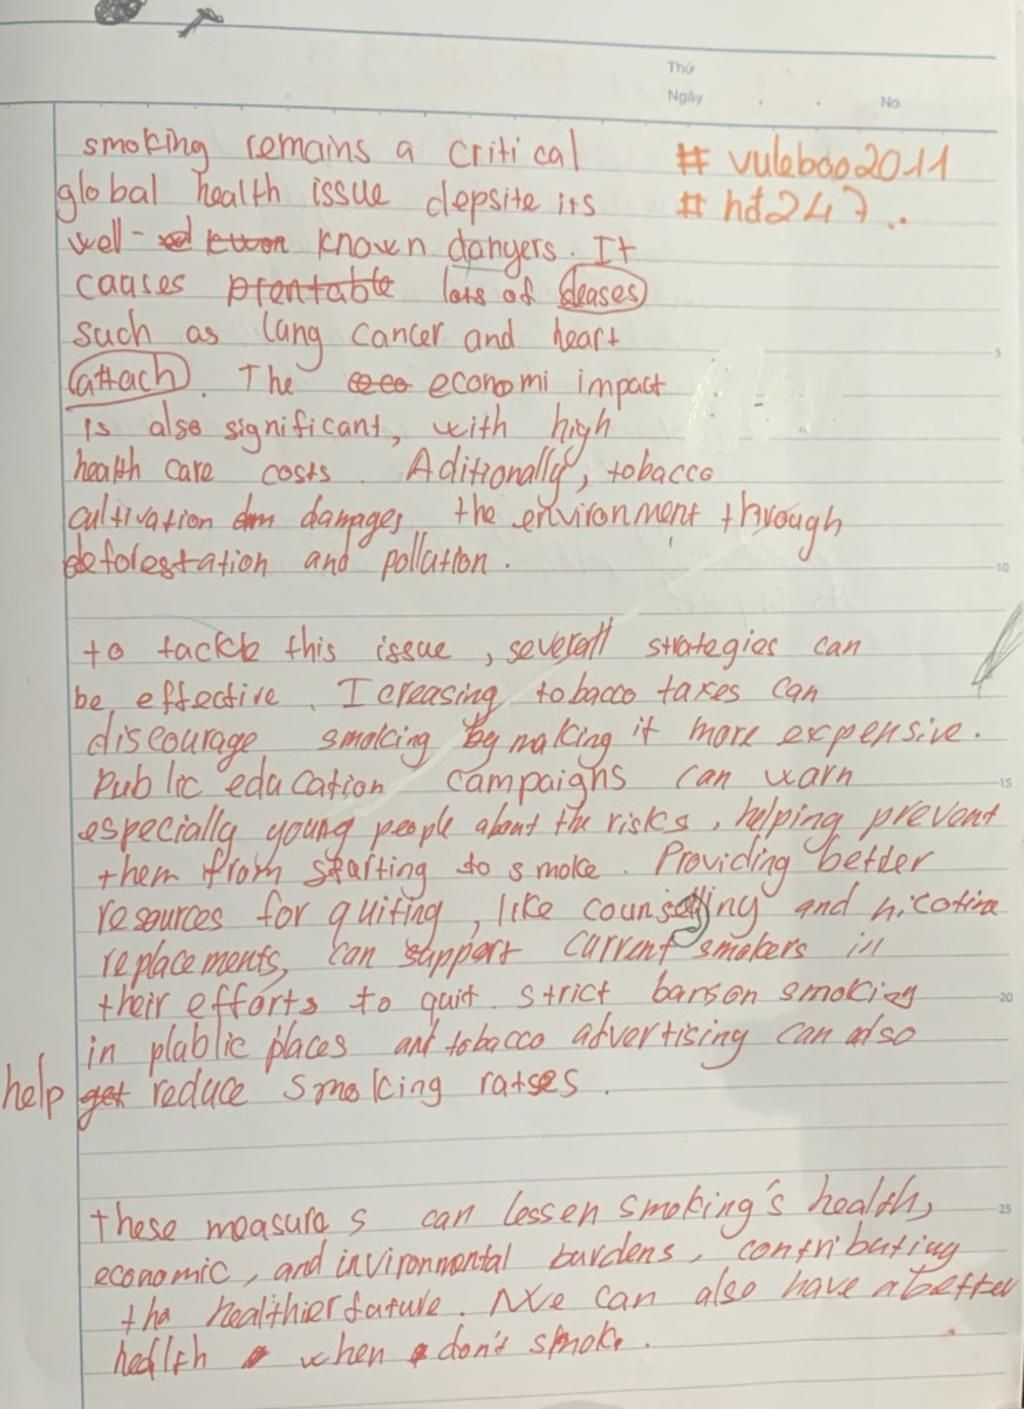 Thứ
Ngày
No.
smoking remains a critical
# vulebao2011
global health issue depsite its
# hđ247..
well- known dangers. It
causes prentable lots of deases
such as lung cancer and heart
attach. The economi impact
is also significant, with high
health care costs. Aditionally, tobacco
cultivation damages the environment through
deforestation and pollution.
5
10
to tackle this issue, severall strategies can
be effective. Icreasing tobacco taxes can
discourage smoking by making it more expensive.
public education campaigns can warn
15
especially young people about the risks, helping prevent
them from starting to smoke. Providing better
resources for quiting, like counselling and nicotine
replacements, can support current smokers in
their efforts to quit. strict bans on smoking
20
in plablic places and tobacco advertising can also
help get reduce smoking ratses.
these measures can lessen smoking's health,
25
economic, and invironmental burdens, contributing
tha healthier future. We can also have a better
health when don't smoke.